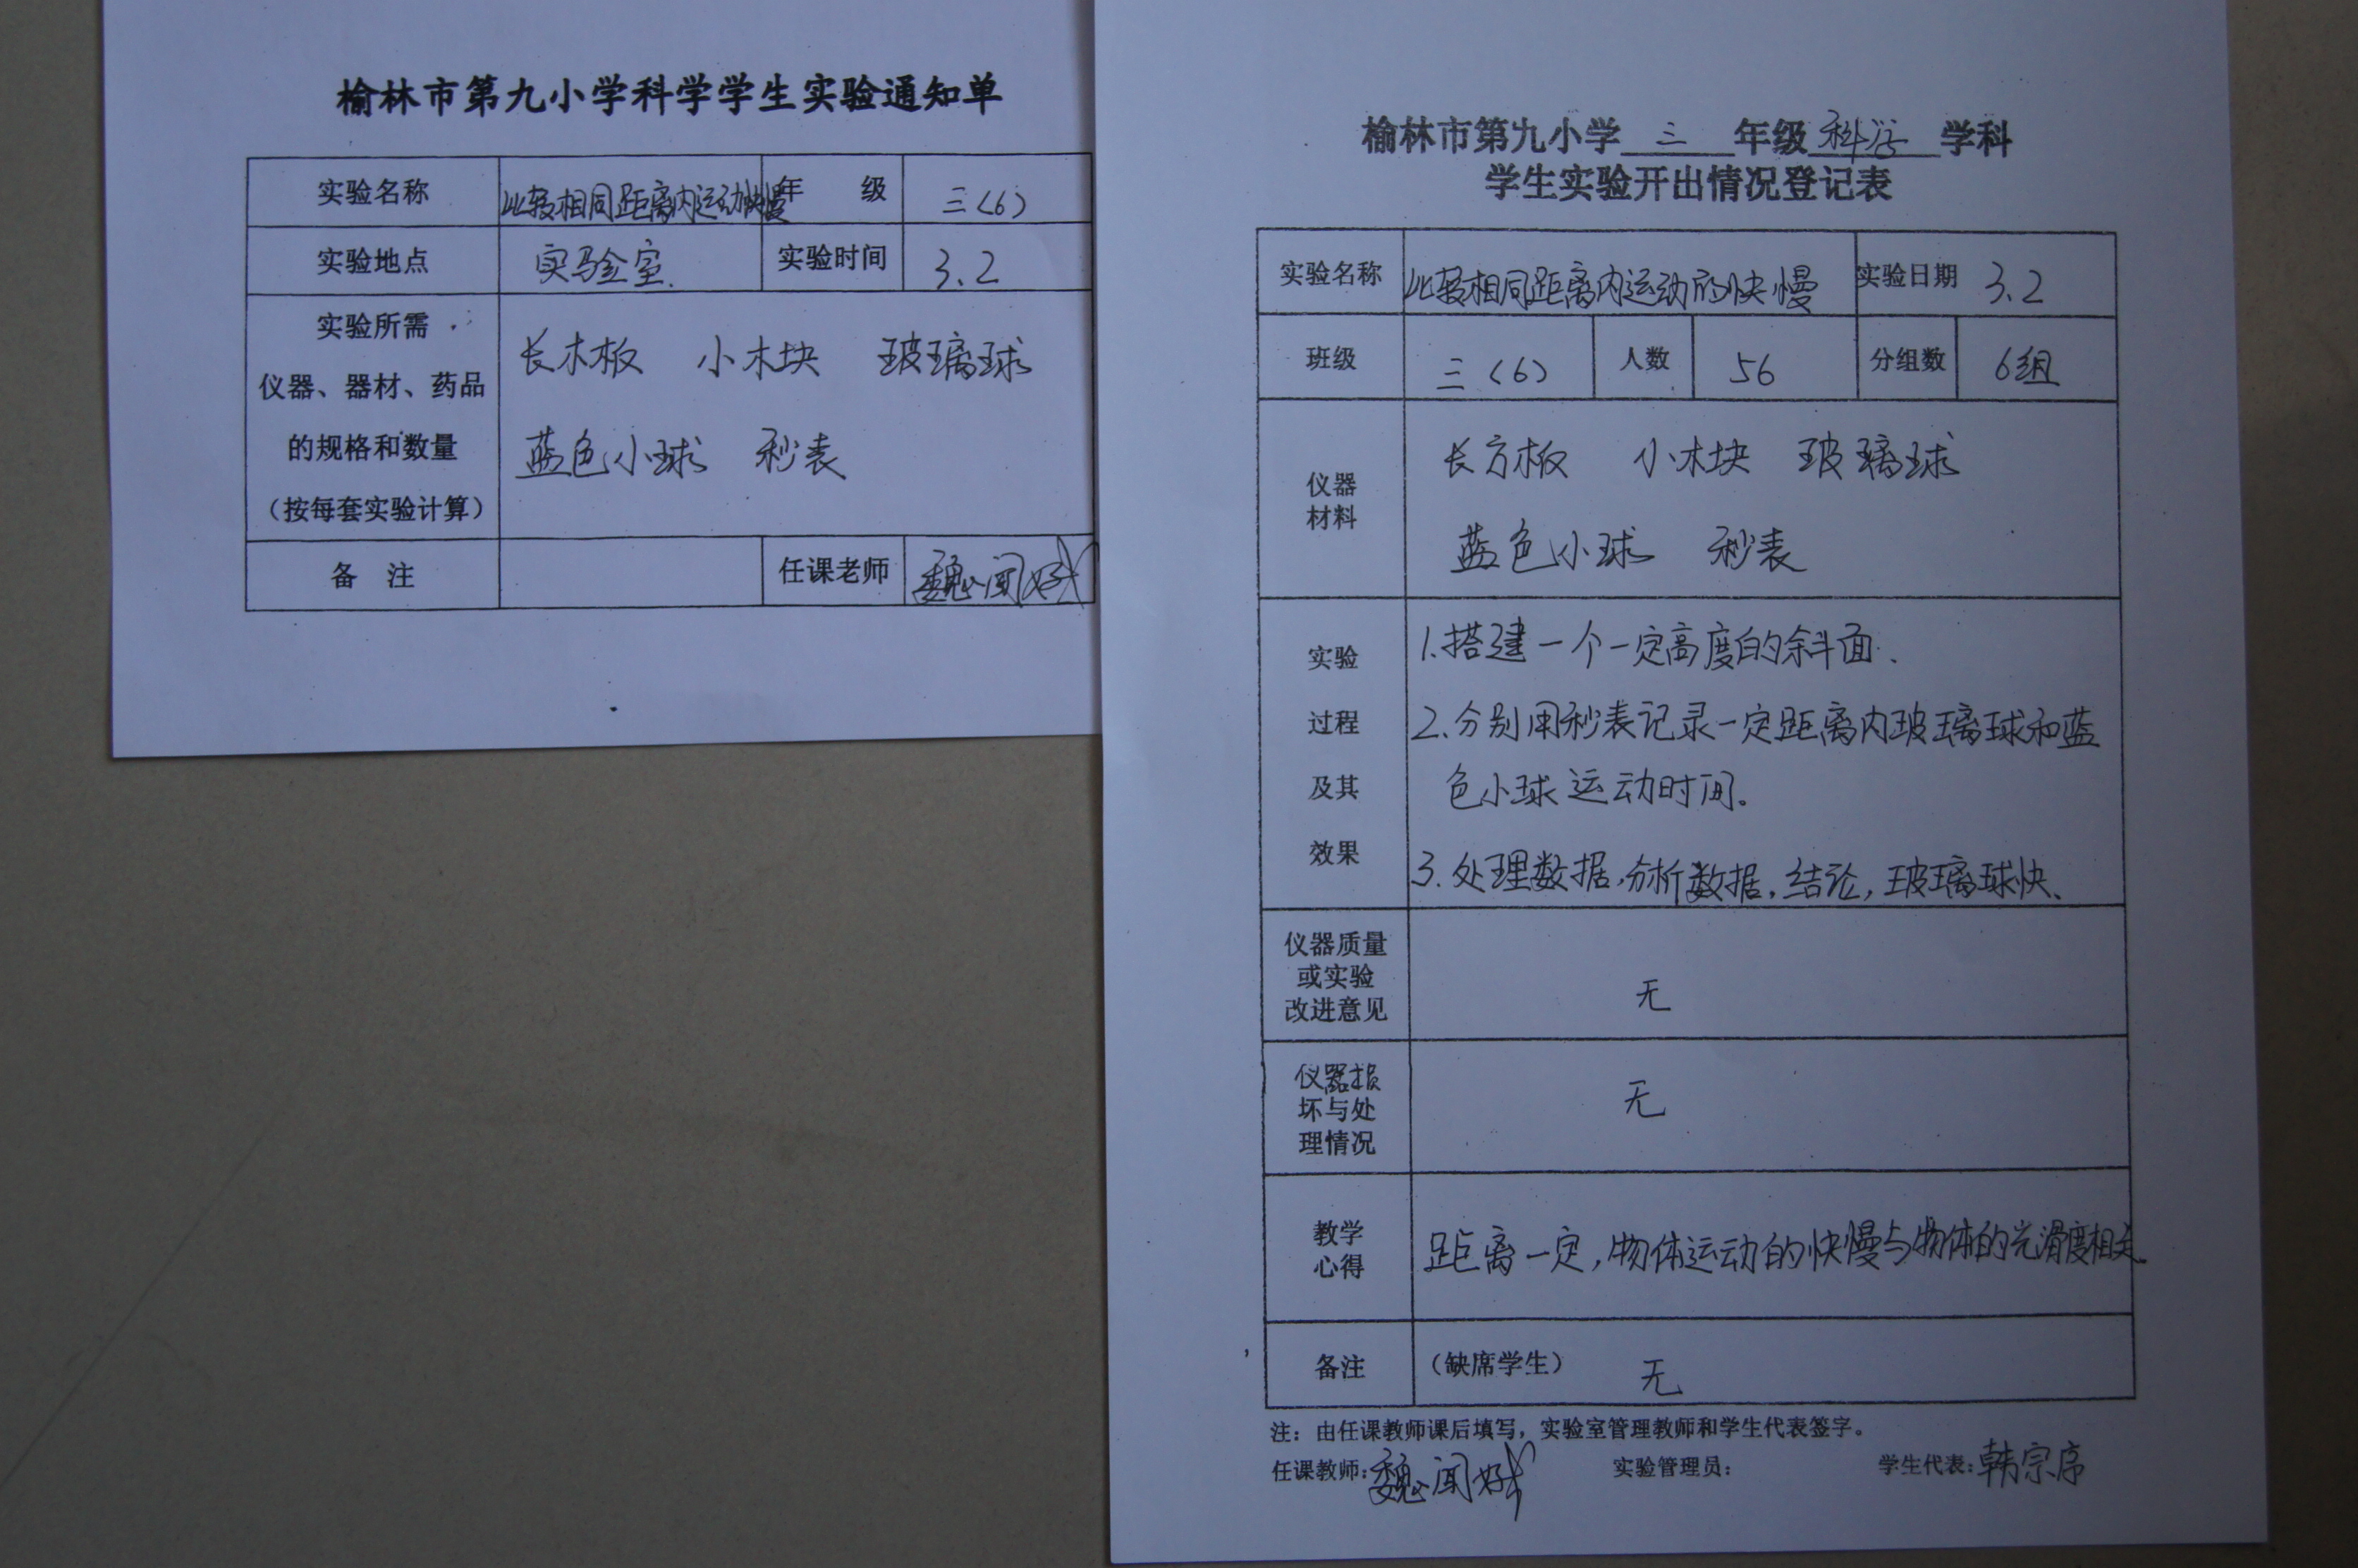 榆林市第九小学科学学生实验通知单
实验名称 比较相同距离内运动快慢 年 级 三(6)
实验地点 实验室. 实验时间 3.2
实验所需
仪器、器材、药品
的规格和数量
（按每套实验计算）
长木板 小木块 玻璃球
蓝色小球 秒表
备 注 任课老师 魏闻
榆林市第九小学 三 年级 科学 学科
学生实验开出情况登记表
实验名称 比较相同距离内运动的快慢 实验日期 3.2
班级 三(6) 人数 56 分组数 6组
仪器
材料
长方板 小木块 玻璃球
蓝色小球 秒表
实验
过程
及其
效果
1.搭建一个一定高度的斜面.
2.分别用秒表记录一定距离内玻璃球和蓝
色小球运动时间。
3.处理数据,分析数据,结论,玻璃球快.
仪器质量
或实验
改进意见
无
仪器损
坏与处
理情况
无
教学
心得
距离一定,物体运动的快慢与物体的光滑度相关.
备注 （缺席学生） 无
注：由任课教师课后填写，实验室管理教师和学生代表签字。
任课教师:魏闻 实验管理员: 学生代表:韩宗序